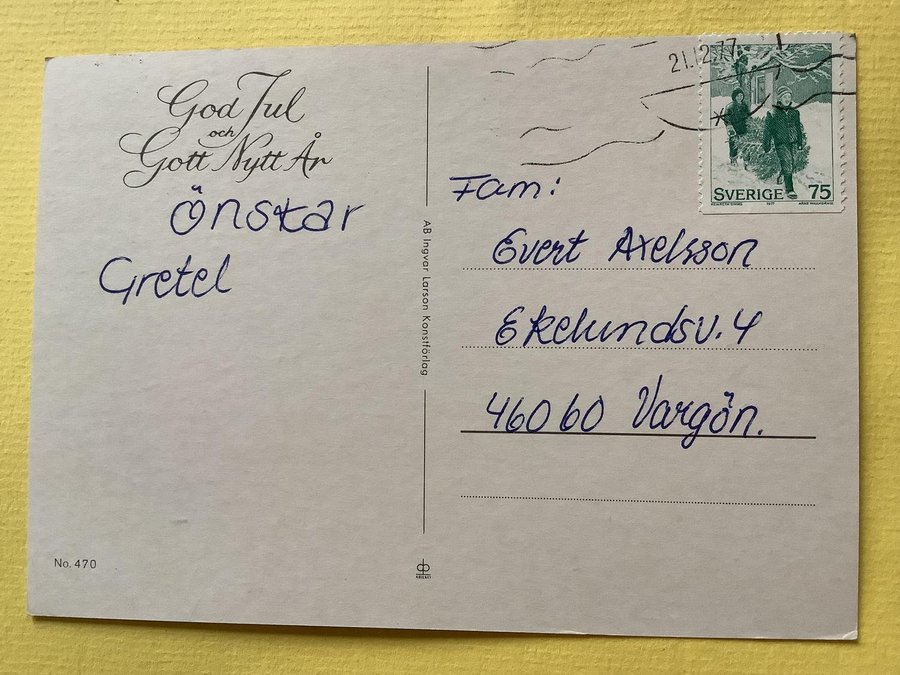 God Jul
och
Gott Nytt År
Önskar
Gretel
No. 470
AB Ingvar Larson Konstförlag
21.12.77
SVERIGE 75
1977
Fam:
Evert Axelsson
Ekelundsv. 4
46060 Vargön.